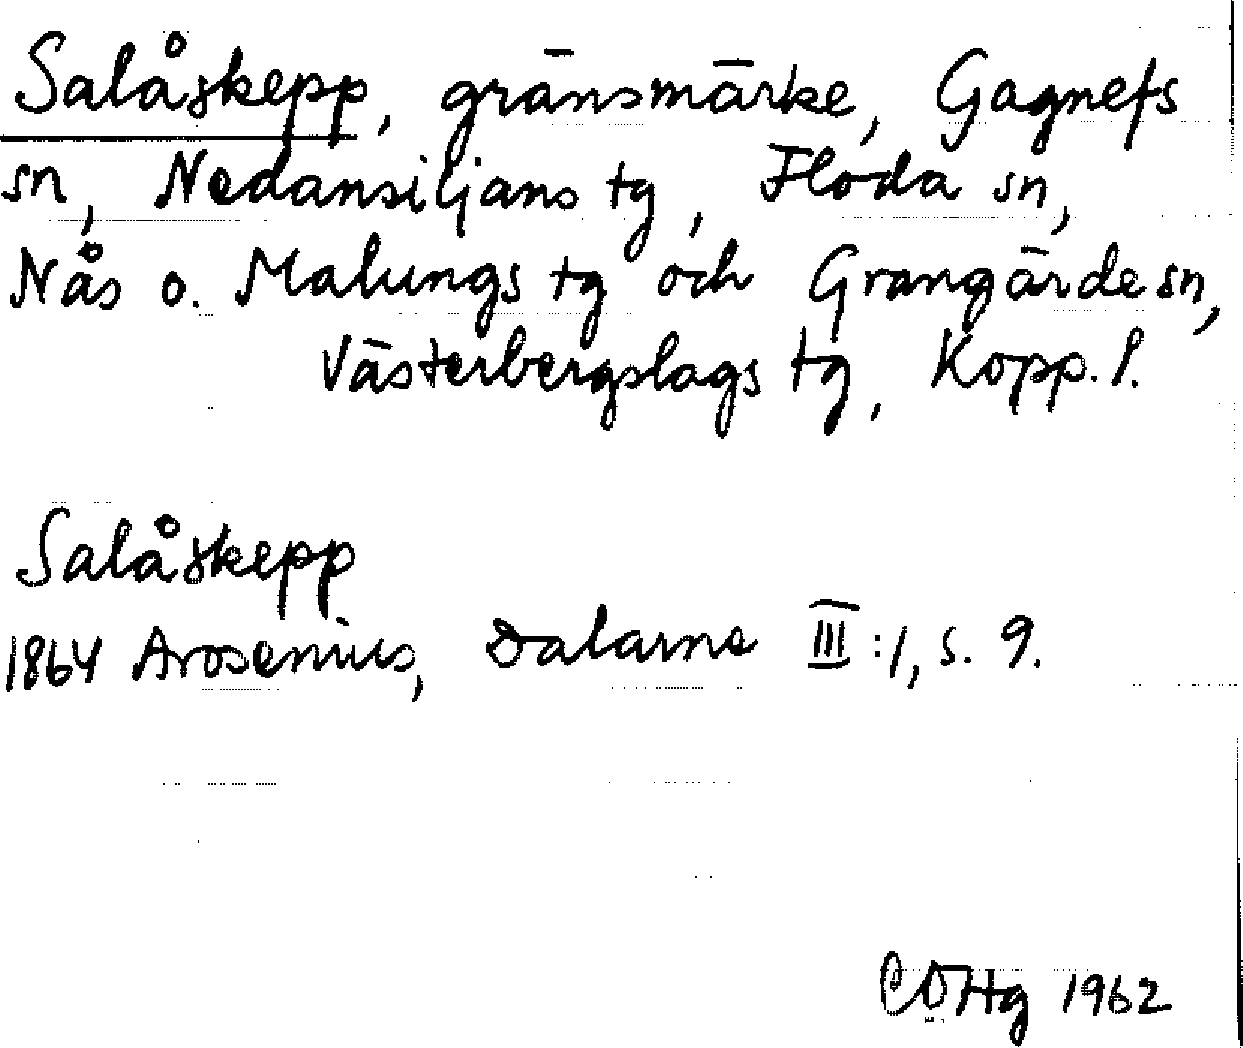 Salåskepp, gränsmärke, Gagnefs
sn, Nedansiljans tg, Floda sn,
Nås o. Malungs tg och Grangärde sn,
Västerbergslags tg, Kopp. l.
Salåskepp
1864 Arosenius, Dalarne III:1, s. 9.
CDHg 1962